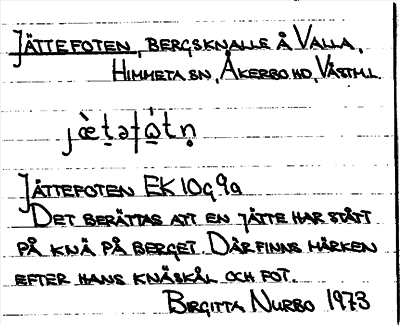 JÄTTEFOTEN, BERGSKNALLE Å VALLA,
HIMMETA SN, ÅKERBO HD, VÄSTML.
JÄTTEFOTEN EK 10g 9a
DET BERÄTTAS ATT EN JÄTTE HAR STÅTT
PÅ KNÄ PÅ BERGET. DÄR FINNS MÄRKEN
EFTER HANS KNÄSKÅL OCH FOT.
BIRGITTA NURBO 1973